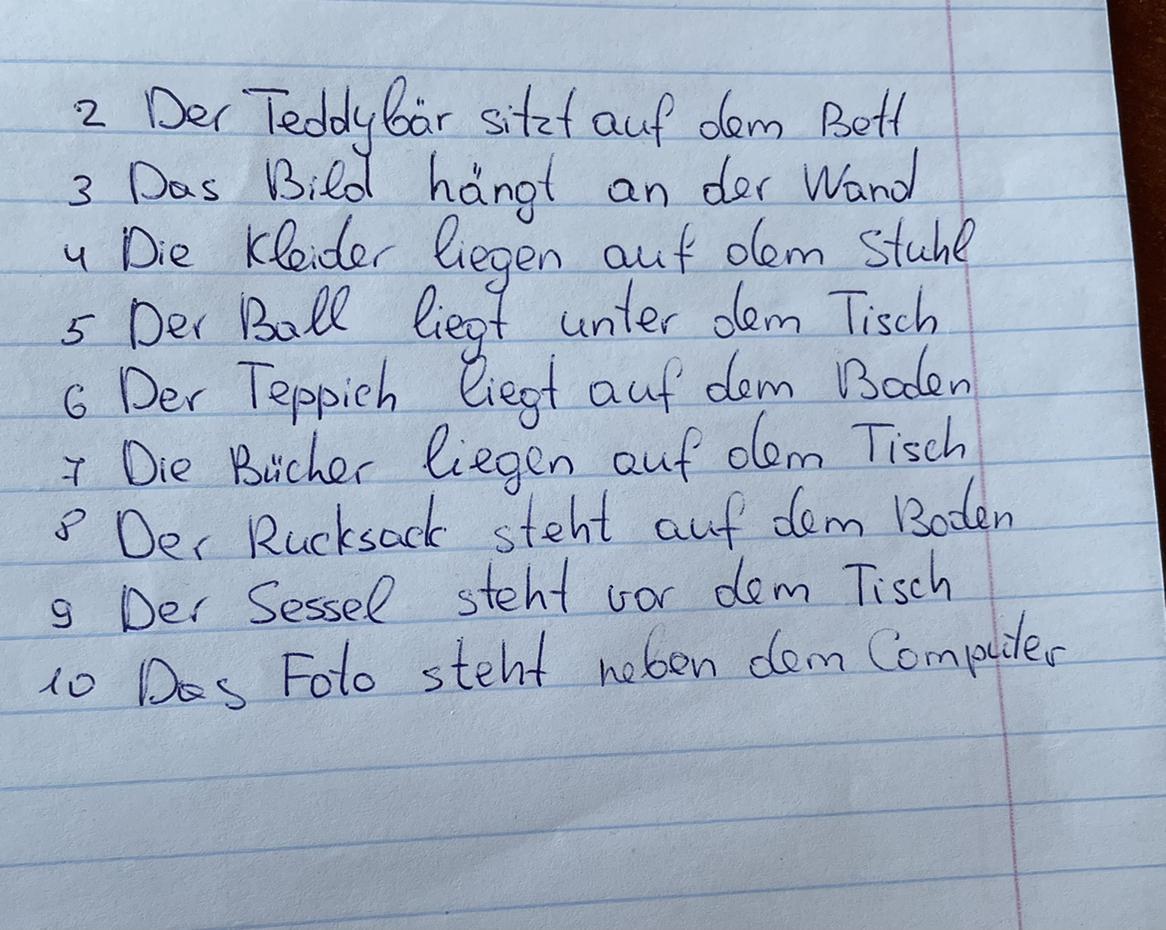 2 Der Teddybär sitzt auf dem Bett
3 Das Bild hängt an der Wand
4 Die Kleider liegen auf dem Stuhl
5 Der Ball liegt unter dem Tisch
6 Der Teppich liegt auf dem Boden
7 Die Bücher liegen auf dem Tisch
8 Der Rucksack steht auf dem Boden
9 Der Sessel steht vor dem Tisch
10 Das Foto steht neben dem Computer